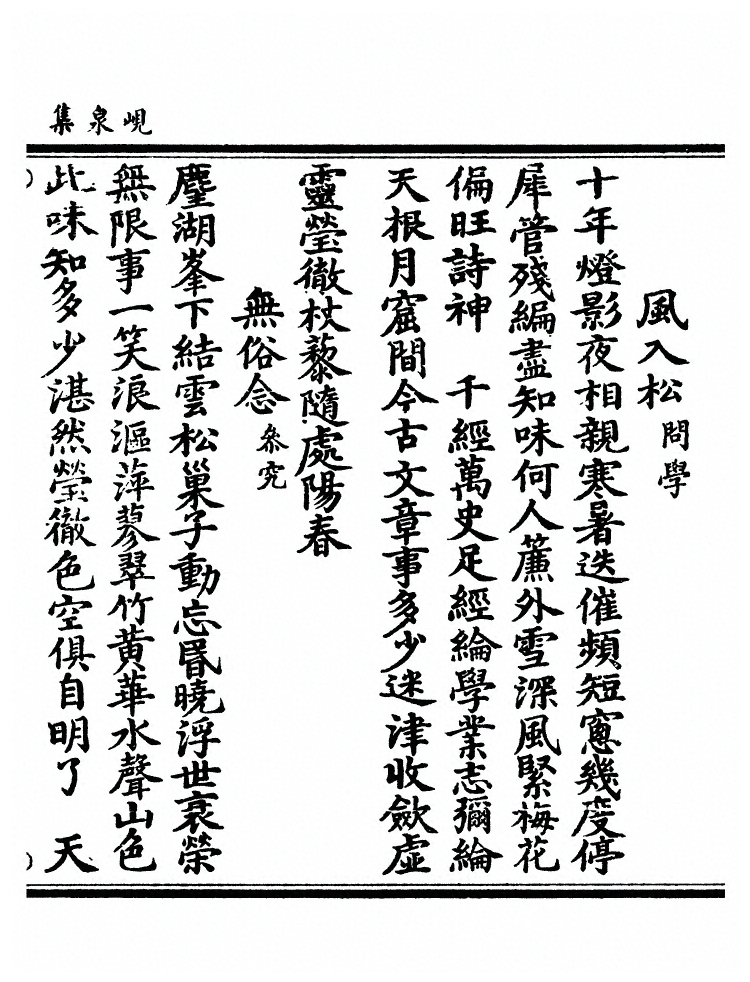 峴泉集
風入松 問學
十年燈影夜相親寒暑迭催頻短窻幾度停
犀管殘編盡知味何人簾外雪深風緊梅花
偏旺詩神　千經萬史足經綸學業志彌綸
天根月窟間今古文章事多少迷津收斂虛
靈瑩徹杖藜隨處陽春
無俗念 叅究
塵湖峯下結雲松巢子動忘昬曉浮世衰榮
無限事一笑浪漚萍蓼翠竹黃華水聲山色
此味知多少湛然瑩徹色空俱自明了　天